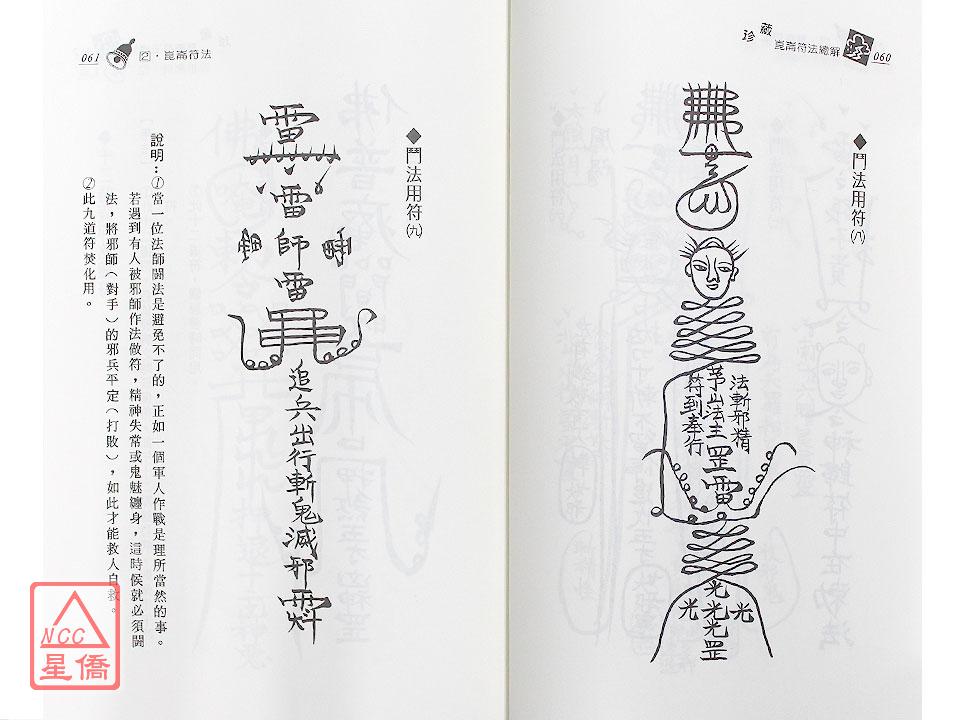 珍藏
崑崙符法總解
060
◆鬥法用符㈧
佛
法斬邪精
茅山法主罡雷
符到奉行
光
光光光
光罡
061
②·崑崙符法
◆鬥法用符㈨
雷
雷
師
雷
追兵出行斬鬼滅邪
說明：①當一位法師鬪法是避免不了的，正如一個軍人作戰是理所當然的事。
若遇到有人被邪師作法做符，精神失常或鬼魅纏身，這時侯就必須鬪
法，將邪師（對手）的邪兵平定（打敗），如此才能救人自救。
②此九道符焚化用。
NCC
星僑